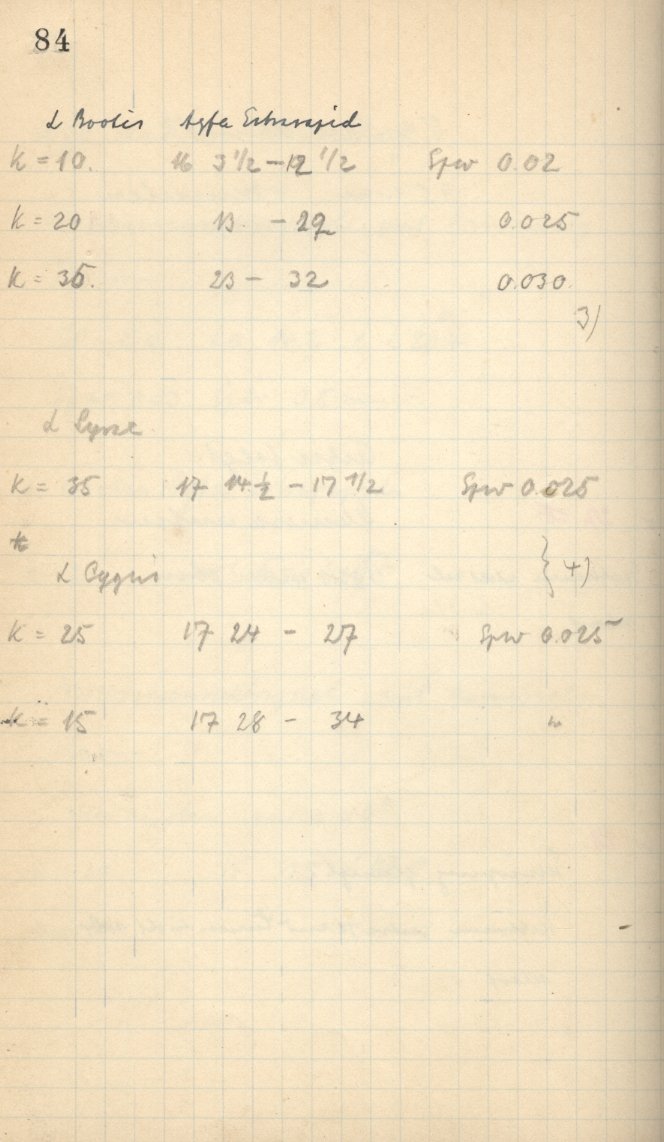 84
α Bootis Agfa Extrarapid
K = 10. 16 3 1/2 – 12 1/2 Spw 0.02
K = 20 13 – 22 0.025
K = 35. 23 – 32 0.030
3)
α Lyrae
K = 35 17 14 1/2 – 17 1/2 Spw 0.025
α Cygni } 4)
K = 25 17 24 – 27 Spw 0.025
K = 15 17 28 – 34 "